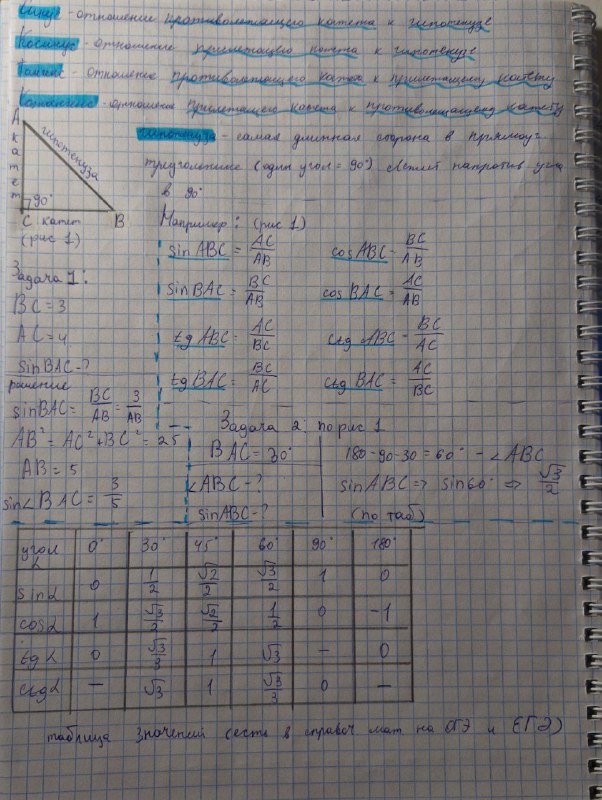 Синус - отношение противолежащего катета к гипотенузе
Косинус - отношение прилежащего катета к гипотенузе
Тангенс - отношение противолежащего катета к прилежащему катету
Котангенс - отношение прилежащего катета к противолежащему катету
Гипотенуза - самая длинная сторона в прямоуг.
треугольнике (один угол = 90°) Лежит напротив угла
в 90°
A
катет
гипотенуза
90°
C катет B
(рис 1)
Например: (рис 1)
sin ABC = AC/AB cos ABC = BC/AB
sin BAC = BC/AB cos BAC = AC/AB
tg ABC = AC/BC ctg ABC = BC/AC
tg BAC = BC/AC ctg BAC = AC/BC
Задача 1:
BC = 3
AC = 4
sin BAC - ?
решение
sin BAC = BC/AB = 3/AB
AB² = AC² + BC² = 25
AB = 5
sin∠BAC = 3/5
Задача 2: по рис 1
BAC = 30°
∠ABC - ?
sin ABC - ?
180-90-30 = 60° - ∠ABC
sin ABC => sin 60° => √3/2
(по таб)
угол α 0° 30° 45° 60° 90° 180°
sin α 0 1/2 √2/2 √3/2 1 0
cos α 1 √3/2 √2/2 1/2 0 -1
tg α 0 √3/3 1 √3 - 0
ctg α - √3 1 √3/3 0 -
таблица значений (есть в справоч мат на ОГЭ и ЕГЭ)